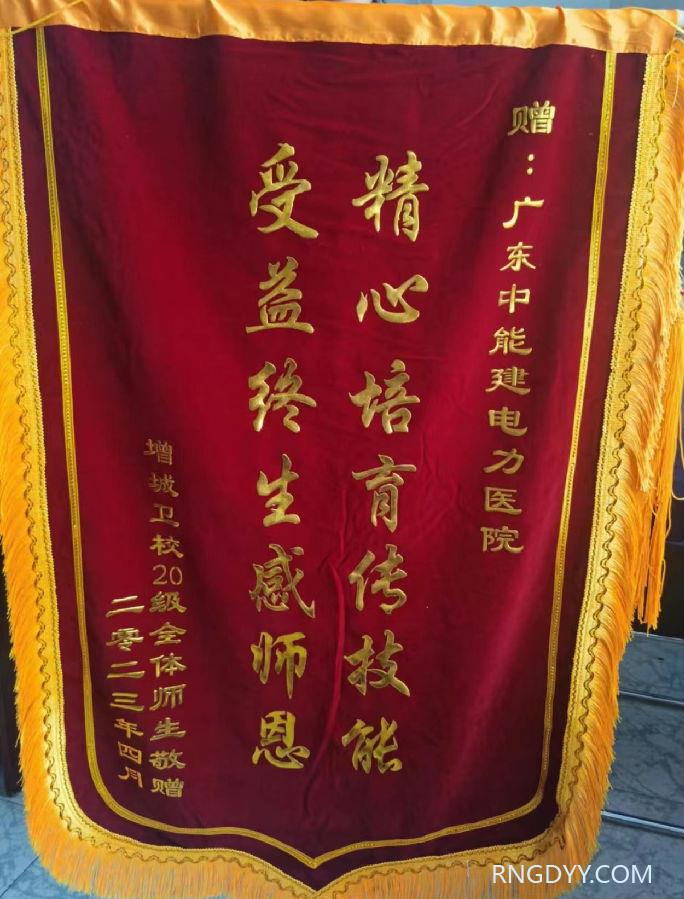 赠：广东中能建电力医院
精心培育传技能
受益终生感师恩
增城卫校20级全体师生敬赠
二零二三年四月
RNGDYY.COM